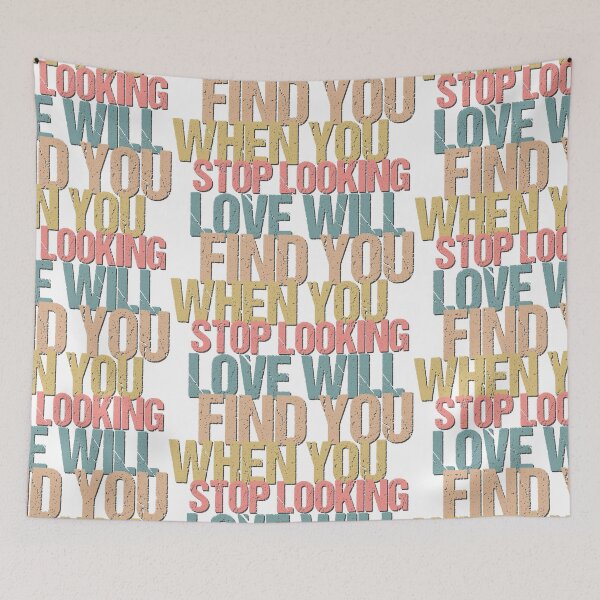 LOOKING
E WILL
D YOU
N YOU
LOOKING
E WILL
D YOU
N YOU
LOOKING
E WILL
D YOU
FIND YOU
WHEN YOU
STOP LOOKING
LOVE WILL
FIND YOU
WHEN YOU
STOP LOOKING
LOVE WILL
FIND YOU
WHEN YOU
STOP LOOKING
LOVE WILL
STOP LOOK
LOVE WIL
FIND
WHEN YO
STOP LOOK
LOVE WIL
FIND
WHEN YO
STOP LOOK
LOVE WIL
FIND